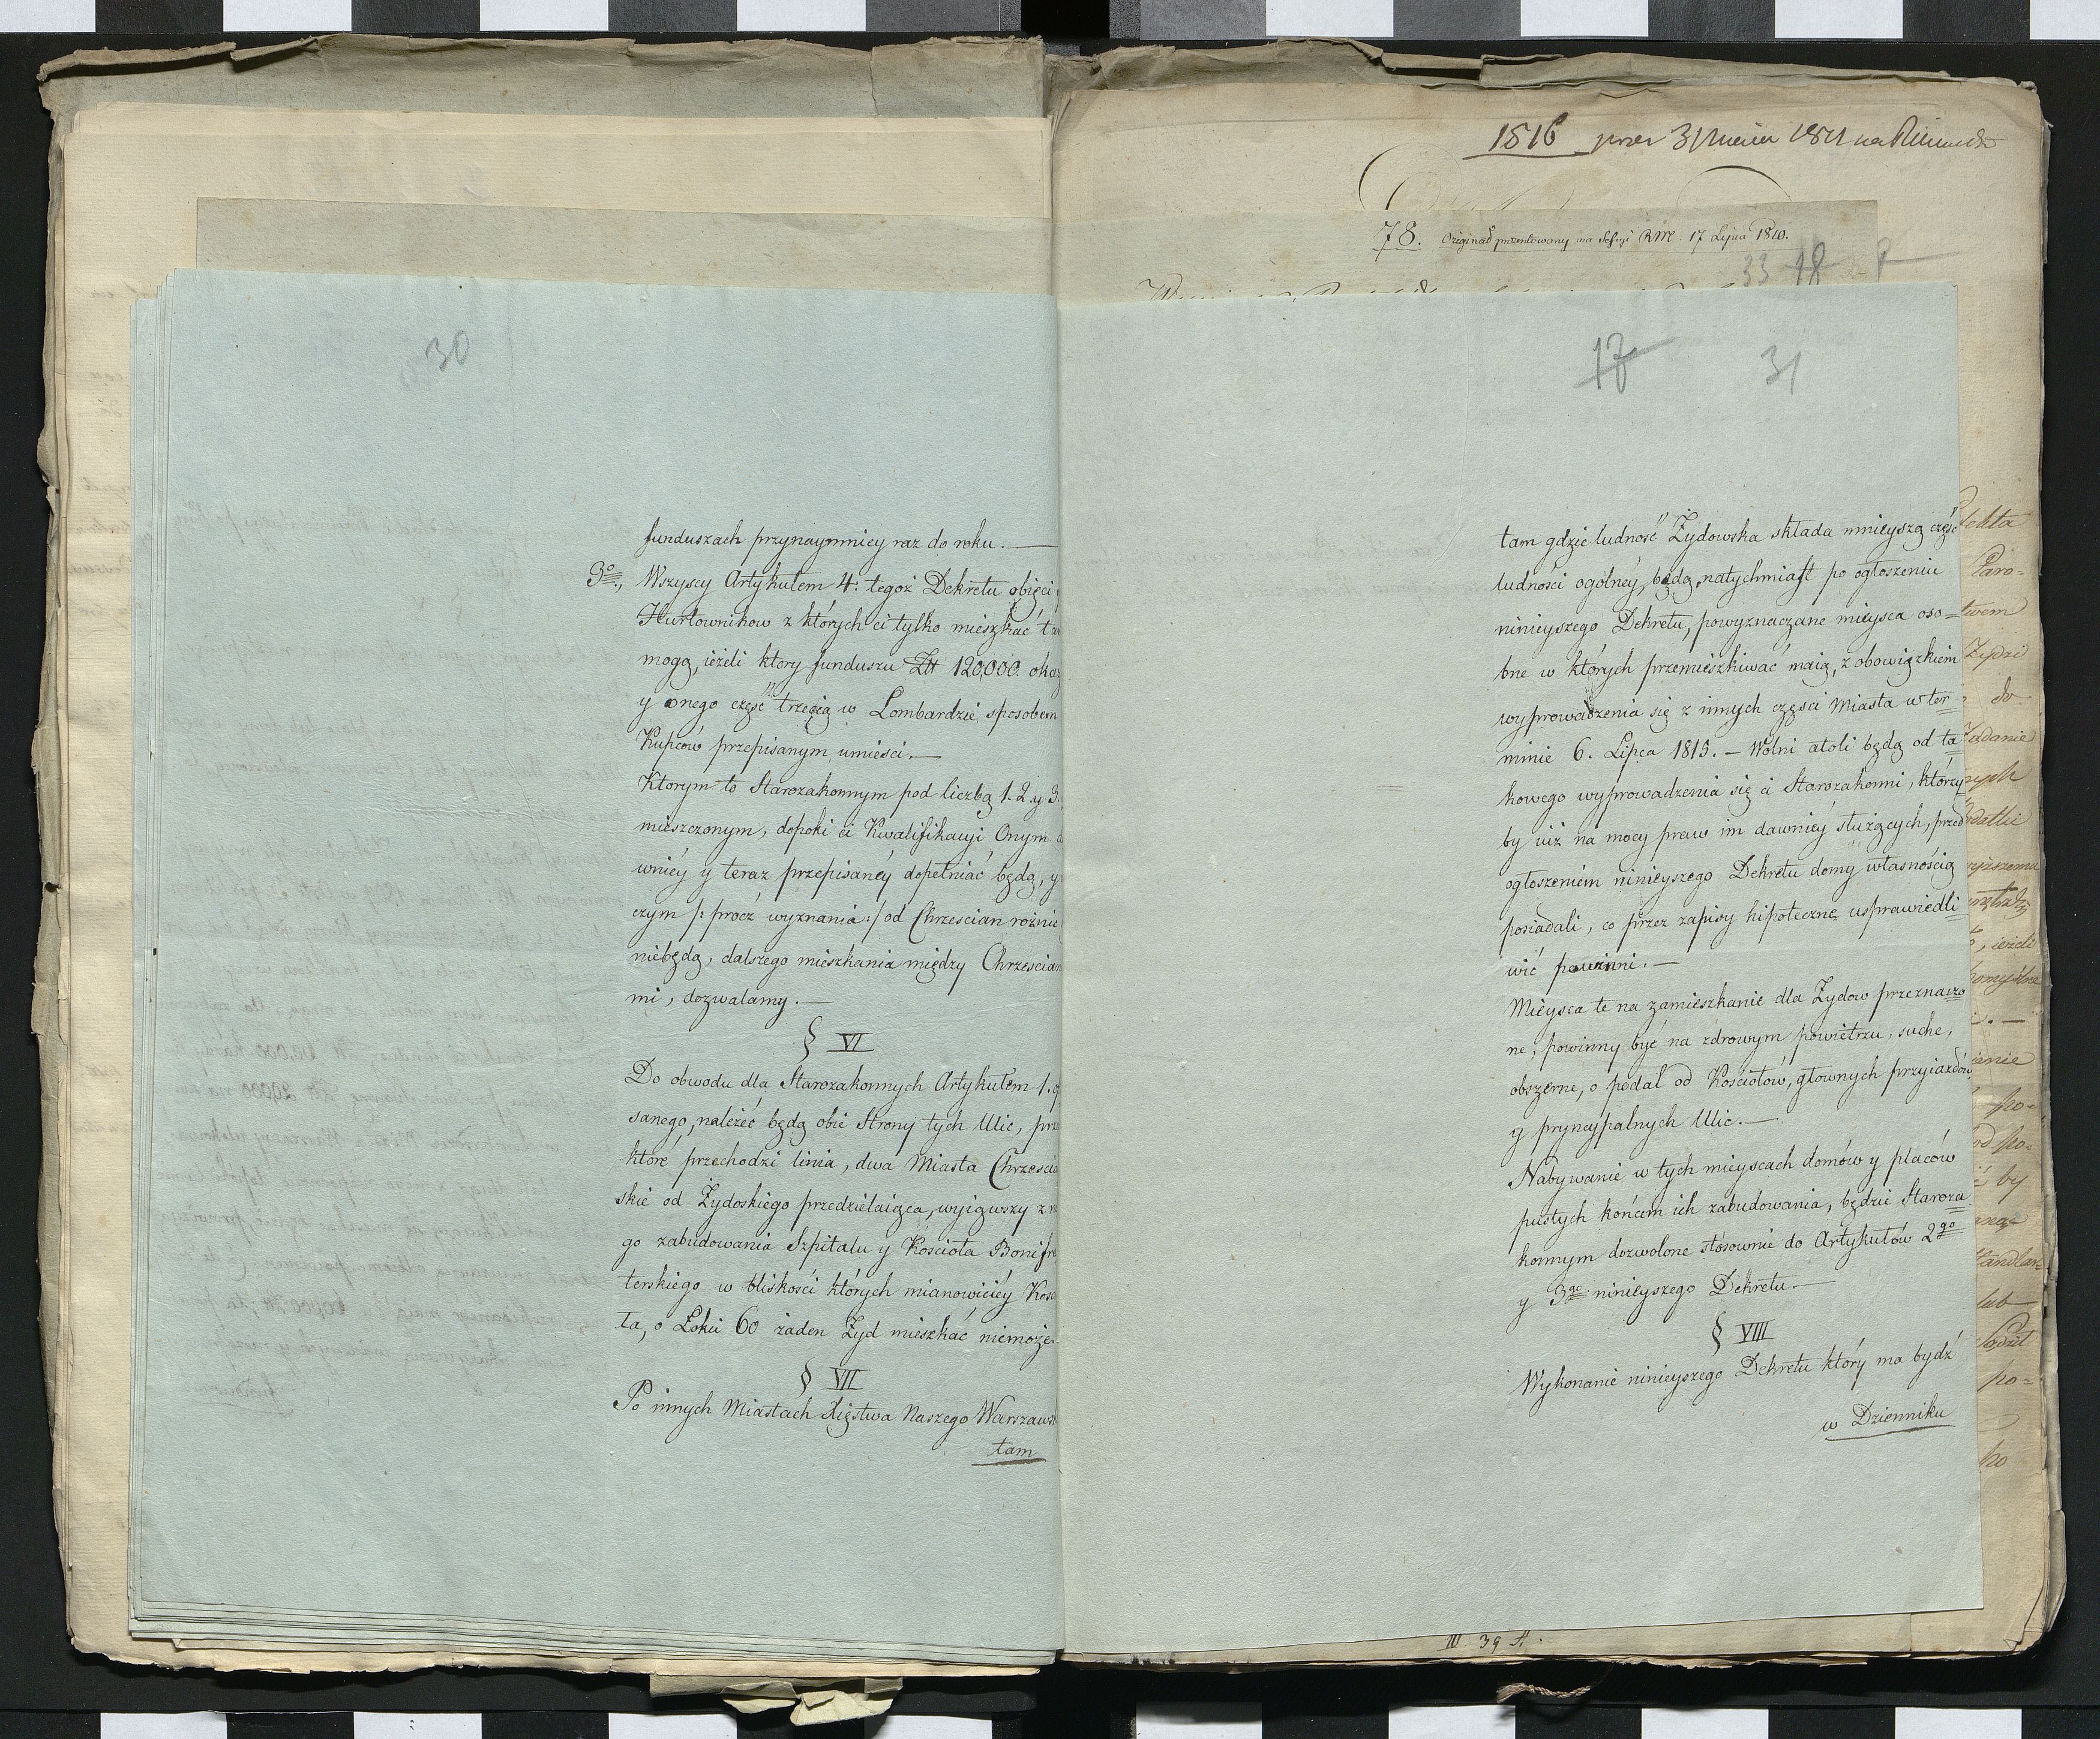 30
funduszach przynaymniey raz do roku. —
3o., Wszyscy Artykułem 4. tegoż Dekretu obięci
Hurtownikow z których ci tylko mieszkać
mogą, ieżeli ktory funduszu Zł 120,000.
y onego część trzecią w Lombardzie, sposobem
Kupców przepisanym umieści. —
Ktorym to Starozakonnym pod liczbą 1. 2. y 3.
mieszczonym, dopoki ci Kwalifikacyi Onym
wniéy y teraz przepisanéy dopełniać będą,
czym /: procz wyznania :/ od Chrzescian
niebędą, dalszego mieszkania między
mi, dozwalamy. —
§ VI
Do obwodu dla Starozakonnych Artykułem 1.
sanego, należéć będą obie Strony tych Ulic,
które przechodzi linia, dwa Miasta
skie od Żydoskiego przedzielaiąca, wyiąwszy z
go zabudowania Szpitalu y Kościoła
terskiego w bliskości których mianowiciéy
ła, o Łokci 60 żaden Żyd mieszkać niemoże.
§ VII
Po innych Miastach Xięstwa Naszego
tam
1816
78. Originał prezentowany na Sessyi RM. 17 Lipca 1810.
33 18
17 31
tam gdzie ludność Żydowska składa mnieyszą część
ludności ogólnéy, będą natychmiast po ogłoszeniu
ninieyszego Dekretu, powyznaczane mieysca oso=
bne w których przemieszkiwać maią, z obowiązkiem
wyprowadzenia się z innych części Miasta w ter=
minie 6. Lipca 1815. — Wolni atoli będą od ta=
kowego wyprowadzenia się ci Starozakonni, którzy=
by iuż na mocy praw im dawniéy służących, przed
ogłoszeniem ninieyszego Dekretu domy własnością
posiadali, co przez zapisy hipoteczne usprawiedli=
wić powinni. —
Mieysca te na zamieszkanie dla Żydow przeznaczo=
ne, powinny być na zdrowym powietrzu, suche,
obszerne, o podal od Kosciołów, głownych przyiazdów
y pryncypalnych Ulic. —
Nabywanie w tych mieyscach domów y placów
pustych końcem ich zabudowania, będzie Staroza=
konnym dozwolone stosownie do Artykułów 2go
y 3go ninieyszego Dekretu. —
§ VIII
Wykonanie ninieyszego Dekretu który ma bydź
w Dzienniku
III 39 A.